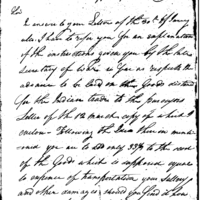 Sir
In answer to your Letter of the 20th of January
ulto. I have to refer you for an explanation
of the instructions given you by the then
Secretary of War as far as respects the
advance to be laid on the Goods destined
for the Indian trade to the precepts
Letter of the 12 March copy of which I
enclose. Following the Rules therein mentioned
you are to add only 33⅓ to the cost
of the Goods which is supposed equal
to expence of transportation your Salary
and other damages, should you find it